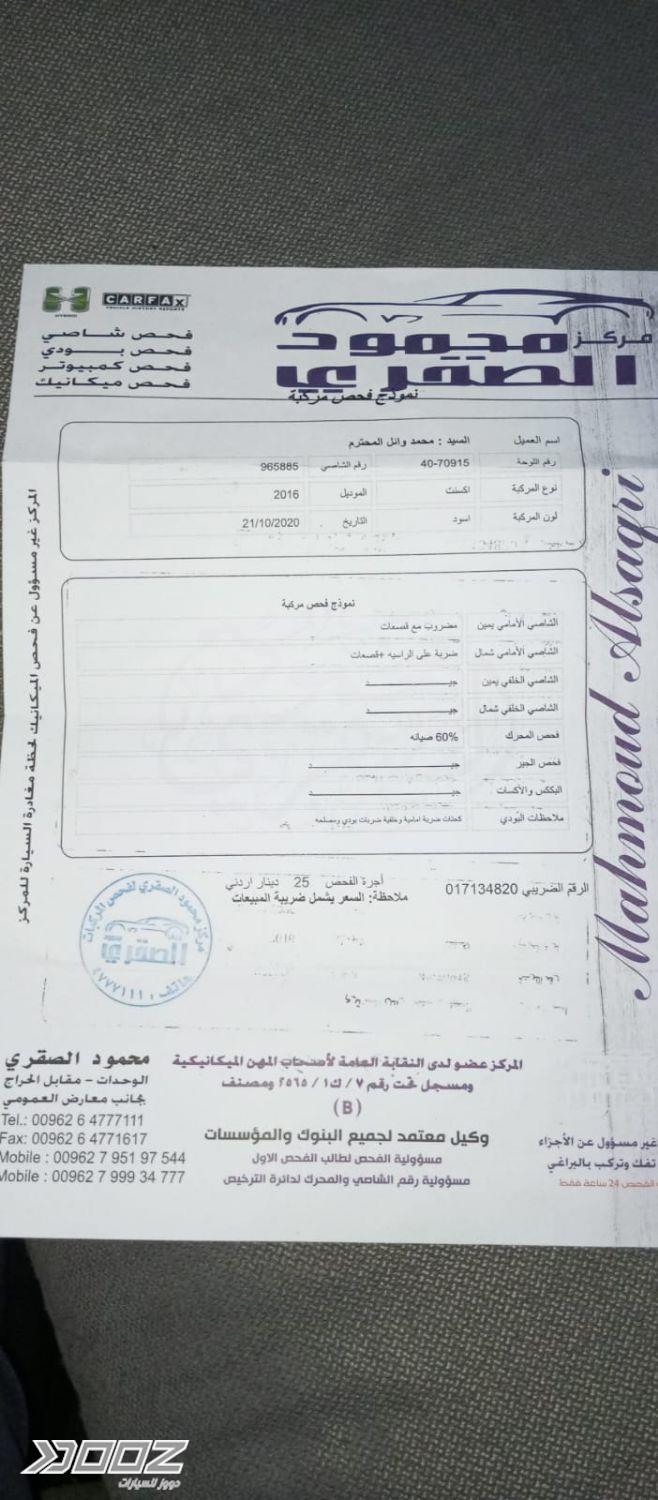 HYBRID
CARFAX
VEHICLE HISTORY REPORTS
فحص شاصي
فحص بودي
فحص كمبيوتر
فحص ميكانيك
مركز محمود
الصقري
نموذج فحص مركبة
اسم العميل السيد : محمد وائل المحترم
رقم اللوحة 40-70915 رقم الشاصي 965885
نوع المركبة اكسنت الموديل 2016
لون المركبة اسود التاريخ 21/10/2020
نموذج فحص مركبة
الشاصي الأمامي يمين مضروب مع قصعات
الشاصي الأمامي شمال ضربة على الراسيه +قصعات
الشاصي الخلفي يمين جيــــــــد
الشاصي الخلفي شمال جيــــــــد
فحص المحرك 60% صيانه
فحص الجير جيــــــــد
البككس والأكسات جيــــــــد
ملاحظات البودي ضربة امامية وخلفية ضربات بودي ومصلحه
الرقم الضريبي 017134820 أجرة الفحص 25 دينار اردني
ملاحظة: السعر يشمل ضريبة المبيعات
مركز محمود الصقري لفحص المركبات
الصقري
هاتف: ٤٧٧٧١١١
المركز غير مسؤول عن فحص الميكانيك لحظة مغادرة السيارة للمركز
Mahmoud Alsaqri
محمود الصقري
الوحدات - مقابل الحراج
بجانب معارض العمومي
Tel.: 00962 6 4777111
Fax: 00962 6 4771617
Mobile : 00962 7 951 97 544
Mobile : 00962 7 999 34 777
المركز عضو لدى النقابة العامة لأصحاب المهن الميكانيكية
ومسجل تحت رقم ٧ / ك١ / ٢٥٦٥ ومصنف
(B)
وكيل معتمد لجميع البنوك والمؤسسات
مسؤولية الفحص لطالب الفحص الاول
مسؤولية رقم الشاصي والمحرك لدائرة الترخيص
غير مسؤول عن الأجزاء
تفك وتركب بالبراغي
الفحص 24 ساعة فقط
DOOZ
دووز للسيارات